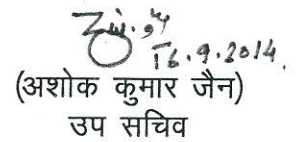 16.9.2014
(अशोक कुमार जैन)
उप सचिव